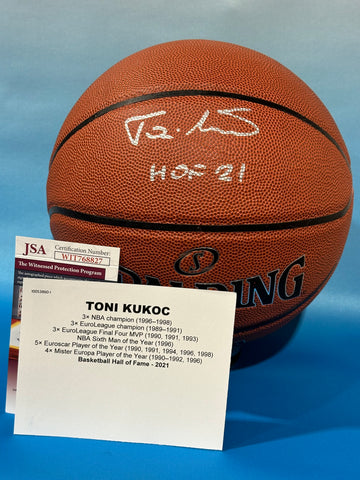 HOF 21
SPALDING
JSA
Certification Number:
WIT768827
The Witnessed Protection Program
TONI KUKOC
3× NBA champion (1996–1998)
3× EuroLeague champion (1989–1991)
3× EuroLeague Final Four MVP (1990, 1991, 1993)
NBA Sixth Man of the Year (1996)
5× Euroscar Player of the Year (1990, 1991, 1994, 1996, 1998)
4× Mister Europa Player of the Year (1990–1992, 1996)
Basketball Hall of Fame - 2021